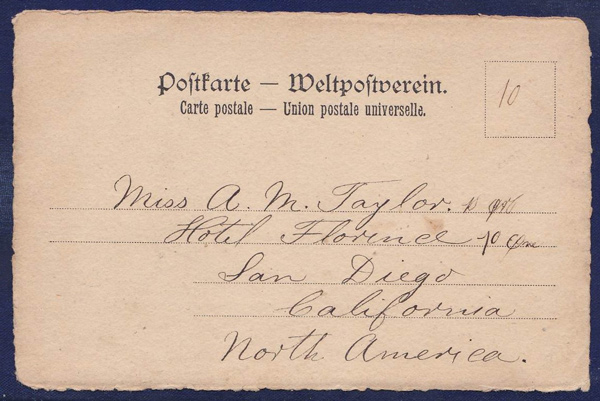 Postkarte — Weltpostverein.
Carte postale — Union postale universelle.
10
Miss A. M. Taylor.
Hotel Florence
San Diego
California
North America.